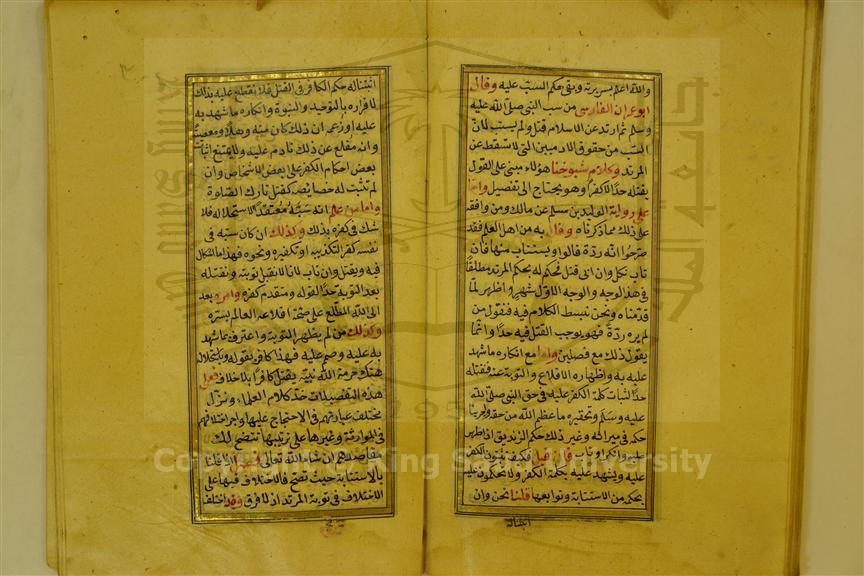 والله اعلم بسريرته وبقى حكم السبّ عليه وقال
ابو عمران الفارسى من سب النبى صلى الله عليه
وسلم ثم ارتد عن الاسلام قتل ولم يستتب لان
السب من حقوق الادميين التى لا تسقط عن
المرتد وكلام شيوخنا هؤلاء مبنى على القول
بقتله حدّا لا كفرا وهو يحتاج الى تفصيل واما
على رواية الوليد بن مسلم عن مالك ومن وافقه
على ذلك مما ذكرناه وقال به من اهل العلم فقد
صرّحوا انه ردّة قالوا ويستتاب منها فان
تاب نكل وان ابى قتل فحكم له بحكم المرتد مطلقا
فى هذا الوجه والوجه الاوّل اشهر واظهر لما
قدمناه ونحن نبسط الكلام فيه فنقول من
لم يره ردّة فهو يوجب القتل فيه حدّا وانما
يقول ذلك مع فصلين واما مع انكاره ما شهد
عليه به واظهاره الاقلاع والتوبة عنه فنقتله
حدّا لثبات كلمة الكفر عليه فى حق النبى صلى الله
عليه وسلم وتحقيره ما عظم الله من حقه واجرينا
حكمه فى ميراثه وغير ذلك حكم الزنديق اذا ظهر
عليه وانكر او تاب فان قيل فكيف تثبتون الكفر
عليه ويشهد عليه بكلمة الكفر ولا تحكمون عليه
بحكمه من الاستتابة وتوابعها قلنا نحن وان
اثبتنا له
اثبتنا له حكم الكافر فى القتل فلا نقطع عليه بذلك
لاقراره بالتوحيد والنبوة وانكاره ما شهد به
عليه او زعمه ان ذلك كان منه وهلا ومعصية
وانه مقلع عن ذلك نادم عليه ولا يمتنع اثبات
بعض احكام الكفر على بعض الاشخاص وان
لم تثبت له خصايصه كقتل تارك الصلوة
واما من علم انه سبّه معتقدا لاستحلاله فلا
شك فى كفره بذلك وكذلك ان كان سبّه فى
نفسه كفر التكذيبه او تكفيره ونحوه فهذا ما لا اشكال
فيه ويقتل وان تاب لانا لا نقبل توبته ونقتله
بعد التوبة حدّا لقوله ومتقدم كفره وامره بعد
الى الله المطّلع على صحّة اقلاعه العالم بسرّه
وكذلك من لم يظهر التوبة واعترف بما شهد
به عليه وصمم عليه فهذا كافر بقوله وباستحلاله
هتك حرمة الله نبيّه يقتل كافرا بلا خلاف فعلى
هذه التفصيلات خذ كلام العلماء ونزّل
مختلف عباراتهم فى الاحتجاج عليها واجر اختلافهم
فى الموارثة وغيرها على ترتيبها تتضح لك
مقاصدهم ان شاء الله تعالى فصل اذا قلنا
بالاستتابة حيث تصح فالاختلاف فيها على
الاختلاف فى توبة المرتد اذ لا فرق وقد اختلف
Copyright © King Saud University
جامعة الملك سعود
1957